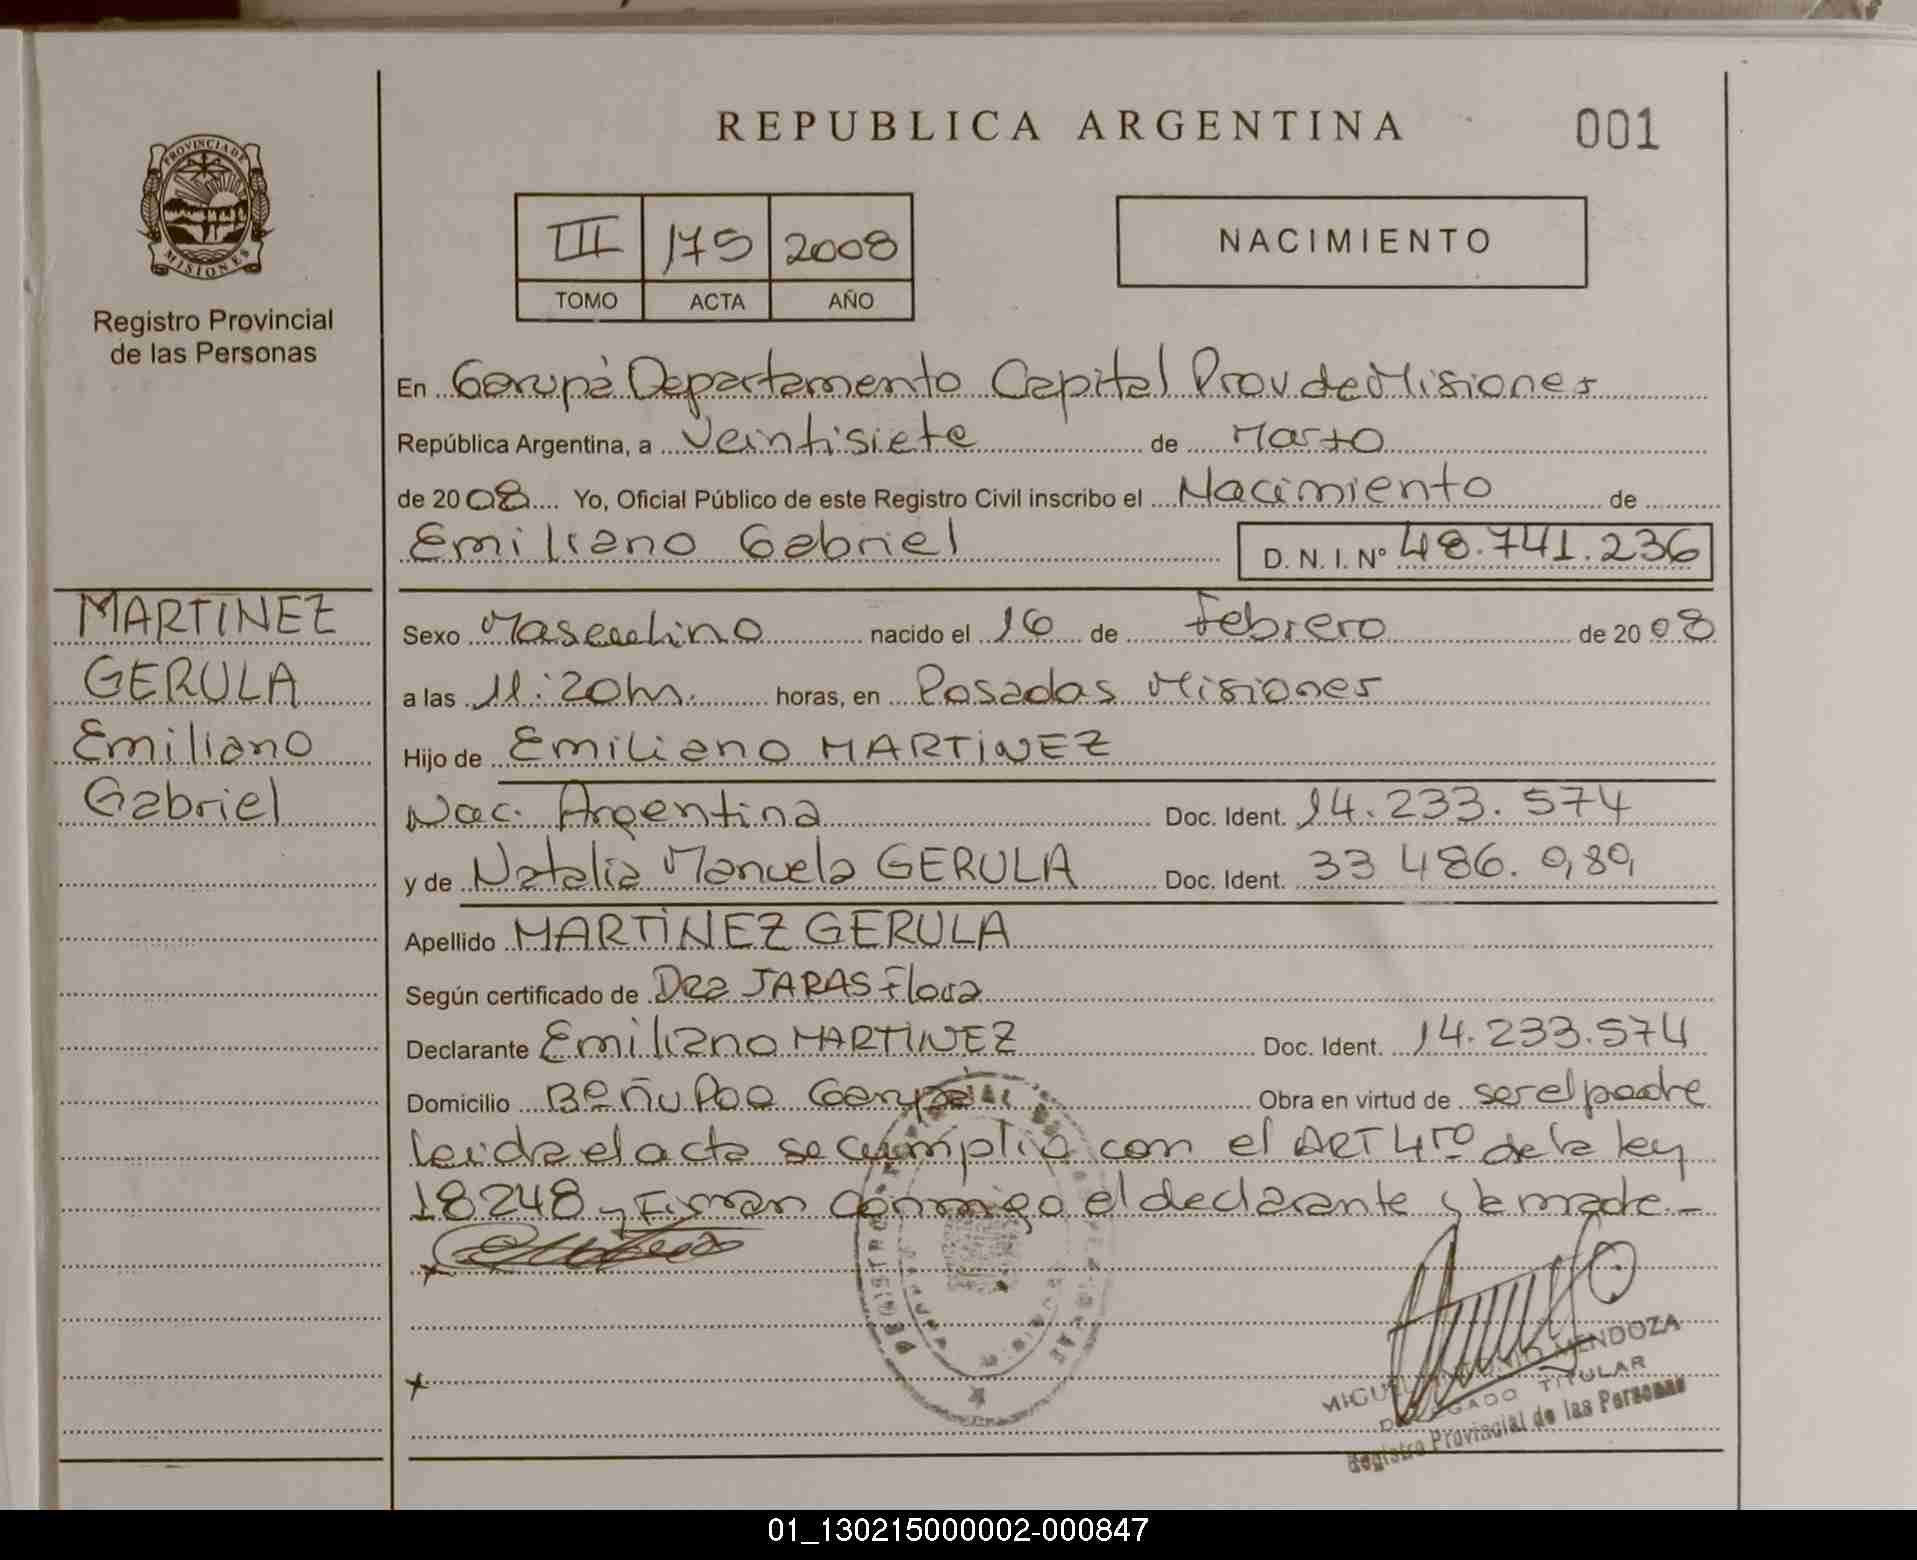 REPUBLICA ARGENTINA
001
PROVINCIA DE
MISIONES
Registro Provincial
de las Personas
III 175 2008
TOMO ACTA AÑO
NACIMIENTO
En Garupá Departamento Capital Prov de Misiones
República Argentina, a Veintisiete de Marzo
de 2008 Yo, Oficial Público de este Registro Civil inscribo el Nacimiento de
Emiliano Gabriel D. N. I. Nº 48.741.236
MARTINEZ
GERULA
Emiliano
Gabriel
Sexo Masculino nacido el 16 de Febrero de 2008
a las 11:20hs. horas, en Posadas Misiones
Hijo de Emiliano MARTINEZ
Nac. Argentina Doc. Ident. 14.233.574
y de Natalia Manuela GERULA Doc. Ident. 33 486.
Apellido MARTINEZ GERULA
Según certificado de Dra JARAS Flora
Declarante Emiliano MARTINEZ Doc. Ident. 14.233.574
Domicilio Bº Ñu Poo Garupa Obra en virtud de ser el padre
Leida el acta se cumplio con el ART 4to de la ley
18248 y Firman conmigo el declarante y la madre -
x
x
MIGUEL ANTONIO MENDOZA
DELEGADO TITULAR
Registro Provincial de las Personas
01_130215000002-000847